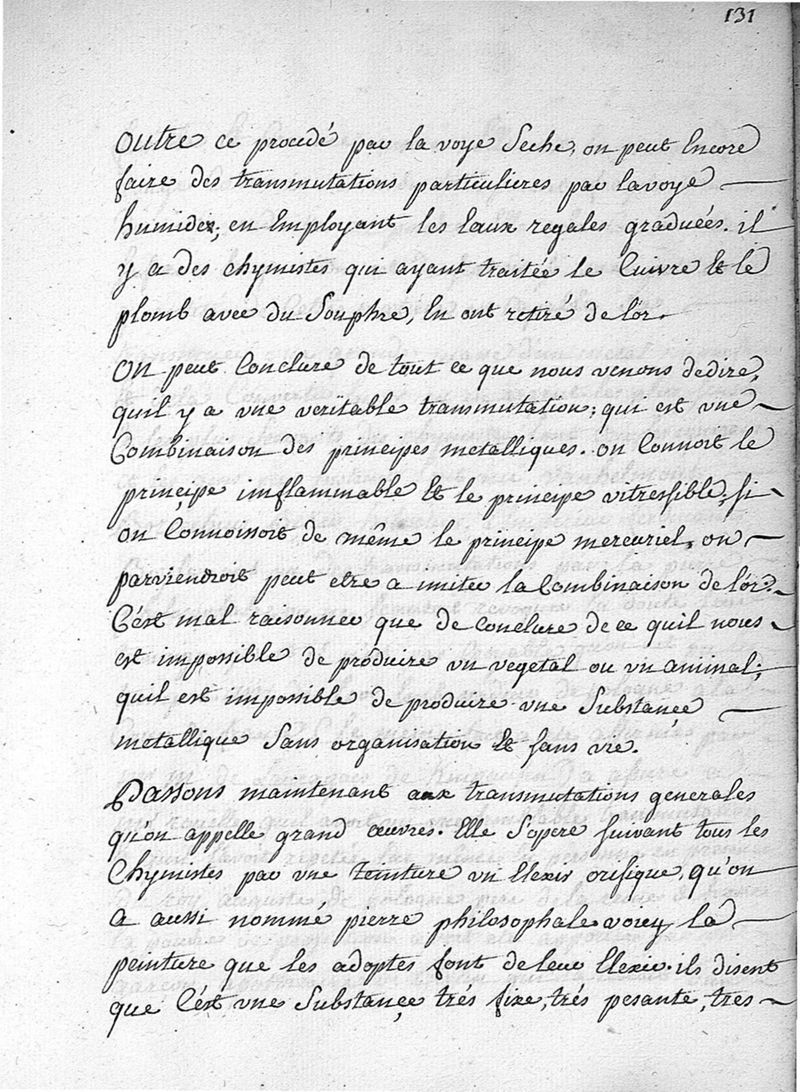 131
outre ce procedé par la voye seche, on peut Encore
faire des transmutations particulieres par la voye
humide; en Employant les Eaux regales graduées. il
y a des chymistes qui ayant traitée le Cuivre Et le
plomb avec du Souphre, En ont retiré de l'or.
On peut Conclure de tout ce que nous venons dedire,
quil y a vne veritable transmutation; qui est vne
Combinaison des principes metalliques. on Connoit le
principe imflammable Et le principe vitressible, si
on Connoissoit de même le principe mercuriel, on
parviendroit peut etre a imiter la Combinaison de l'or.
C'est mal raisonner que de conclure de ce quil nous
est impossible de produire vn vegetal ou vn aminal;
quil est impossible de produire vne Substançe
metallique Sans organisation Et sans vie.
Passons maintenant aux transmutations generales
qu'on appelle grand œuvres. Elle S'opere suivant tous les
Chymistes par vne teinture vn Elexir orifique, qu'on
a aussi nomme pierre philosophale voicy la
peinture que les adoptes font de leur Elexir. ils disent
que C'est vne Substançe trés fixe, trés pesante, tres